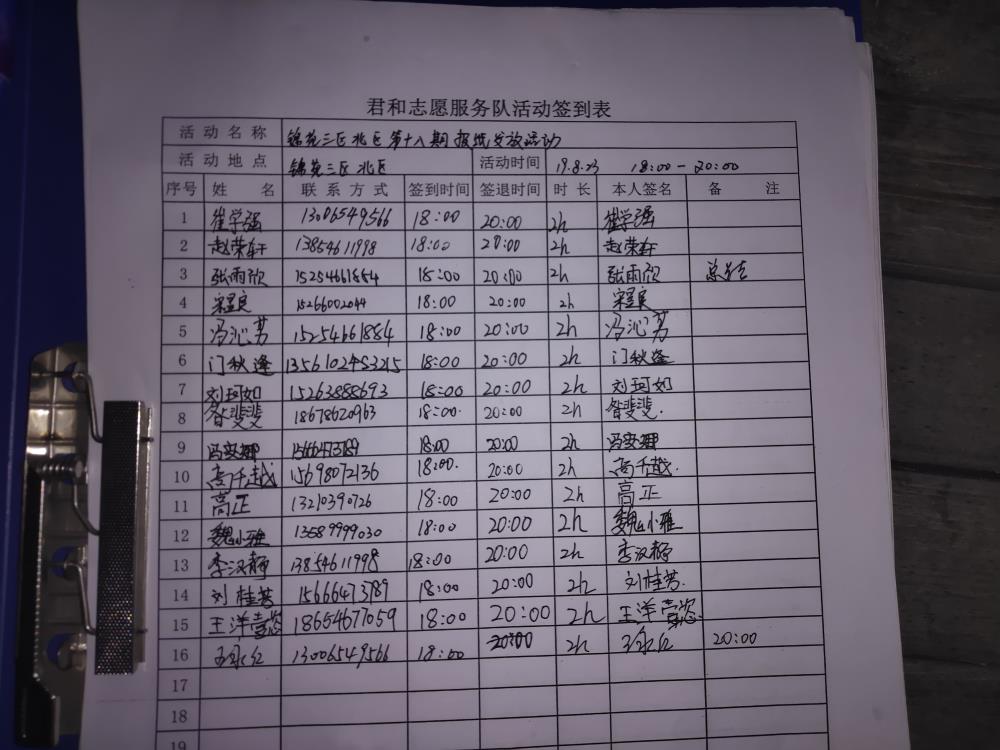 君和志愿服务队活动签到表
活动名称 锦苑三区北区第十八期报纸发放活动
活动地点 锦苑三区北区 活动时间 19.8.23 18:00-20:00
序号 姓名 联系方式 签到时间 签退时间 时长 本人签名 备注
1 崔学强 13006549566 18:00 20:00 2h 崔学强
2 赵荣轩 13854611998 18:00 20:00 2h 赵荣轩
3 张雨欣 15254661884 18:00 20:00 2h 张雨欣
4 15266002044 18:00 20:00 2h
5 冯沁芳 15254661884 18:00 20:00 2h 冯沁芳
6 门秋逢 13561024S3215 18:00 20:00 2h 门秋逢
7 刘珂如 15263888693 18:00 20:00 2h 刘珂如
8 昝斐斐 18678620963 18:00. 20:00 2h 昝斐斐.
9 15666473789 18:00 20:00 2h
10 高千越 15698072136 18:00. 20:00 2h 高千越.
11 高正 13210390726 18:00 20:00 2h 高正
12 魏小雅 13589999030 18:00 20:00 2h 魏小雅
13 李汉静 13854611998 18:00 20:00 2h 李汉静
14 刘桂芳 15666473789 18:00 20:00 2h 刘桂芳.
15 王洋壹 18654677059 18:00 20:00 2h 王洋壹
16 13006549566 18:00 20:00 2h 20:00
17
18
19